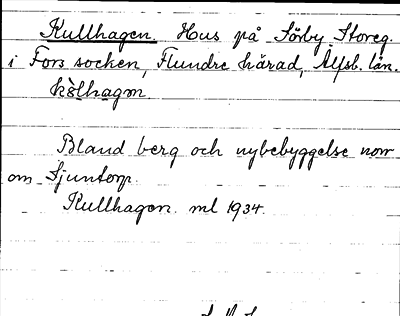 Kullhagen. Hus på Sörby Storeg.
i Fors socken, Flundre härad, Älfsb. län.
kòlhagm.
Bland berg och nybebyggelse norr
om Sjuntorp.
Kullhagen. ml 1934.